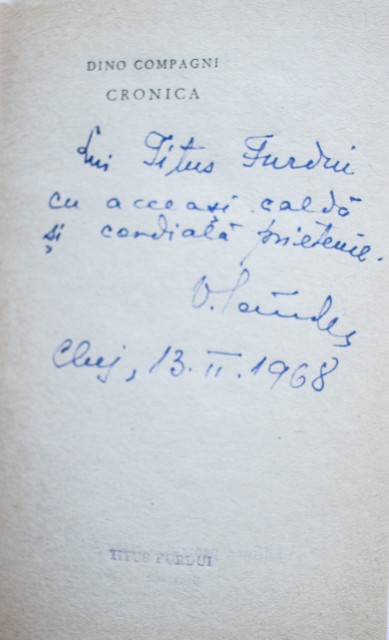 DINO COMPAGNI
CRONICA
Lui Titus Furdui
cu aceeași caldă
și cordială prietenie.
V.
Cluj, 13.II.1968
TITUS FURDUI